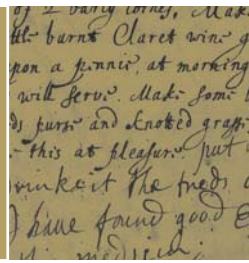 of 2 barly cornes. Make
tle burnt Claret wine g
pon a pennie, at morning
will serve. Make some
ds purse and knotted grasse
this at pleasure put
rinke it the
I have found good E
medicin